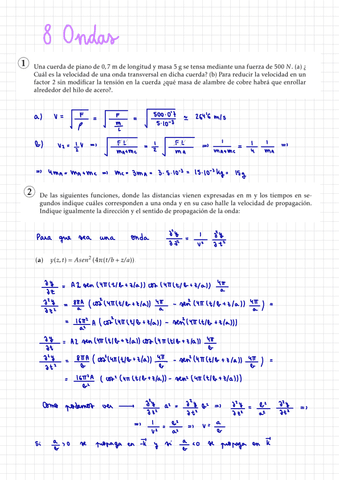 8 Ondas
1 Una cuerda de piano de 0,7 m de longitud y masa 5 g se tensa mediante una fuerza de 500 N. (a) ¿
Cuál es la velocidad de una onda transversal en dicha cuerda? (b) Para reducir la velocidad en un
factor 2 sin modificar la tensión en la cuerda ¿qué masa de alambre de cobre habrá que enrollar
alrededor del hilo de acero?.
a.) V = √(F/ρ) = √(F/(m/L)) = √(500·0'7/5·10⁻³) ≃ 264'6 m/s
b) V₂ = 1/2 V ⇒ √(FL/(mₐ+m_c)) = 1/2 √(FL/mₐ) ⇒ 1/(mₐ+m_c) = 1/4 1/mₐ ⇒
⇒ 4mₐ = mₐ+m_c ⇒ m_c = 3mₐ = 3·5·10⁻³ = 15·10⁻³ kg = 15g
2 De las siguientes funciones, donde las distancias vienen expresadas en m y los tiempos en se-
gundos indique cuáles corresponden a una onda y en su caso halle la velocidad de propagación.
Indique igualmente la dirección y el sentido de propagación de la onda:
Para que sea una onda ∂²y/∂z² = 1/v² ∂²y/∂t²
(a) y(z,t) = Asen²(4π(t/b + z/a))
= A2 sen(4π(t/b+z/a)) cos(4π(t/b+z/a)) 4π/a
= 8πA/a (cos²(4π(t/b+z/a)) 4π/a − sen²(4π(t/b+z/a)) 4π/a) =
= 16π²/a² A (cos²(4π(t/b+z/a)) − sen²(4π(t/b+z/a)))
∂y/∂t = A2 sen(4π(t/b+z/a)) cos(4π(t/b+z/a)) 4π/b
∂²y/∂t² = 8πA/b (cos²(4π(t/b+z/a)) 4π/b − sen²(4π(t/b+z/a)) 4π/b) =
= 16π²A/b² (cos²(4π(t/b+z/a)) − sen²(4π(t/b+z/a)))
Como podemos ver ⟶ ∂²y/∂z² a² = ∂²y/∂t² b² ⇒ ∂²y/∂z² = b²/a² ∂²y/∂t² ⇒
⇒ 1/v² = b²/a² ⇒ v = a/b
Si a/b > 0 se propaga en -k⃗ y si a/b < 0 se propaga en k⃗